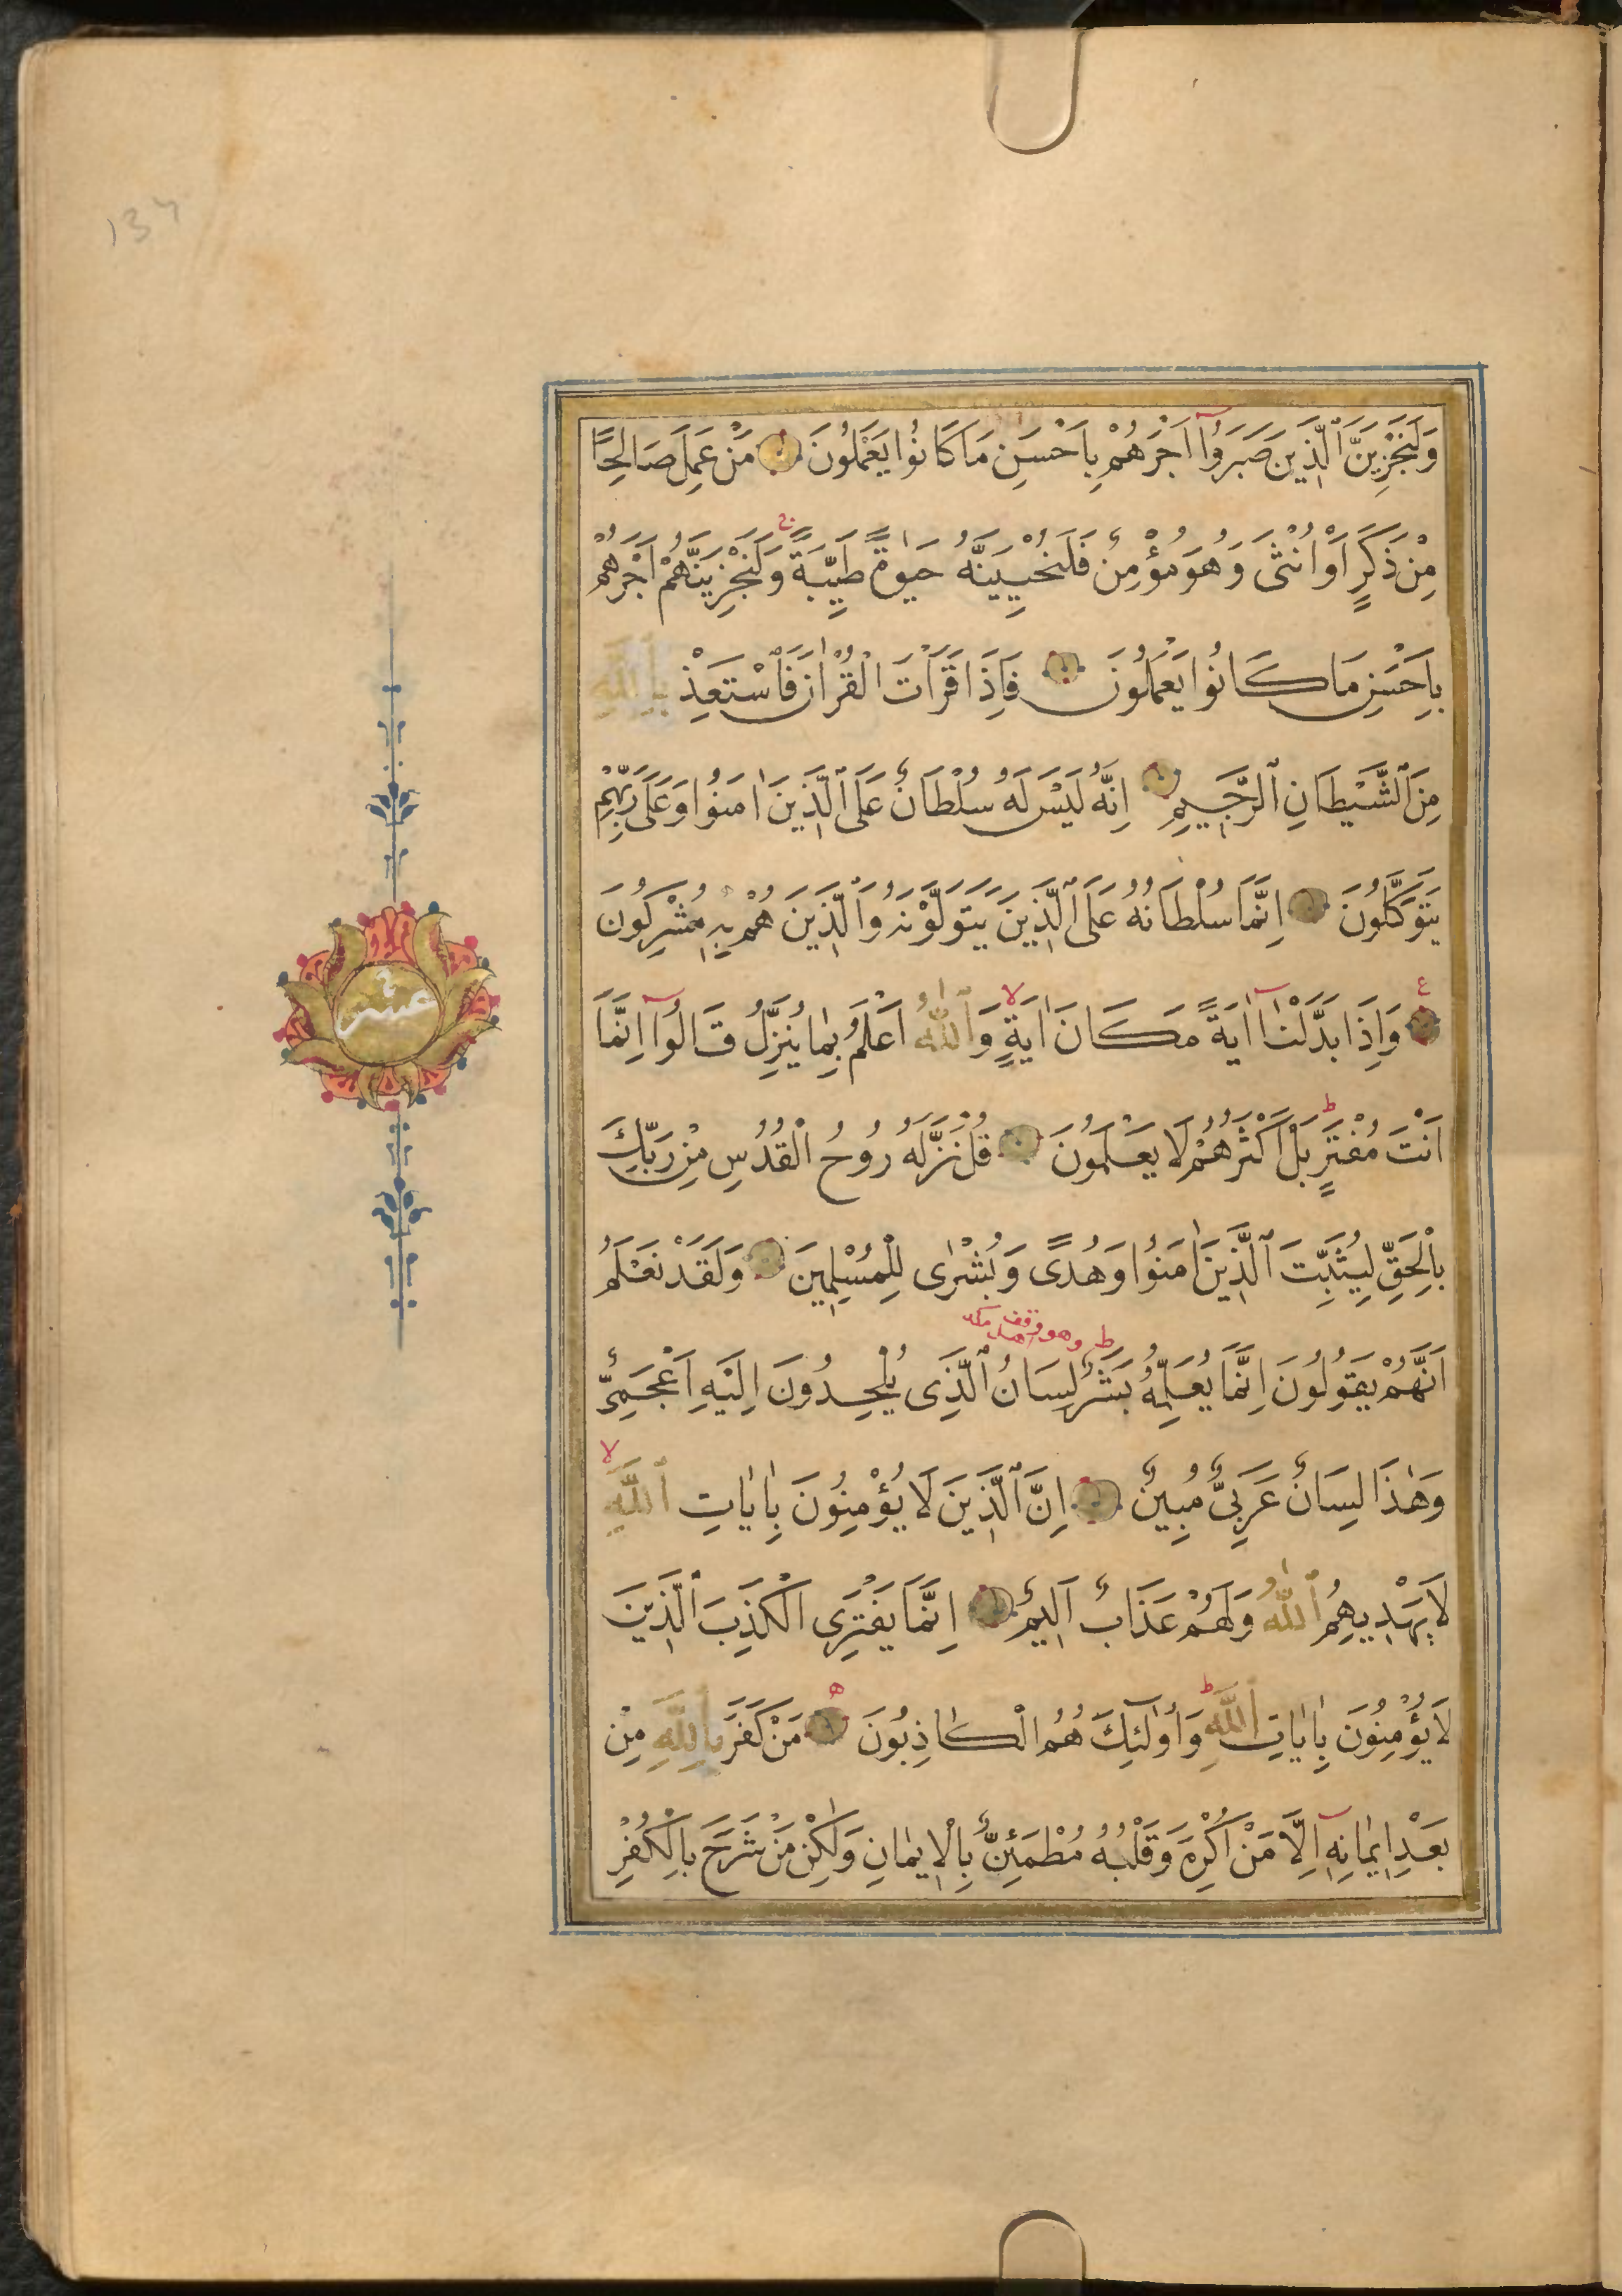 وَلَنَجْزِيَنَّ ٱلَّذِينَ صَبَرُوٓا اَجْرَهُمْ بِاَحْسَنِ مَا كَانُوا يَعْمَلُونَ مَنْ عَمِلَ صَالِحًا
مِنْ ذَكَرٍ اَوْ اُنْثٰى وَهُوَ مُؤْمِنٌ فَلَنُحْيِيَنَّهُ حَيٰوةً طَيِّبَةً وَلَنَجْزِيَنَّهُمْ اَجْرَهُمْ
بِاَحْسَنِ مَا كَانُوا يَعْمَلُونَ فَاِذَا قَرَاْتَ الْقُرْاٰنَ فَاسْتَعِذْ بِاللَّهِ
مِنَ ٱلشَّيْطَانِ ٱلرَّجِيمِ اِنَّهُ لَيْسَ لَهُ سُلْطَانٌ عَلَى ٱلَّذِينَ اٰمَنُوا وَعَلٰى رَبِّهِمْ
يَتَوَكَّلُونَ اِنَّمَا سُلْطَانُهُ عَلَى ٱلَّذِينَ يَتَوَلَّوْنَهُ وَٱلَّذِينَ هُمْ بِهِ مُشْرِكُونَ
ع وَاِذَا بَدَّلْنَآ اٰيَةً مَكَانَ اٰيَةٍ لا وَٱللّٰهُ اَعْلَمُ بِمَا يُنَزِّلُ قَالُوٓا اِنَّمَا
اَنْتَ مُفْتَرٍ ط بَلْ اَكْثَرُهُمْ لَا يَعْلَمُونَ قُلْ نَزَّلَهُ رُوحُ الْقُدُسِ مِنْ رَبِّكَ
بِالْحَقِّ لِيُثَبِّتَ ٱلَّذِينَ اٰمَنُوا وَهُدًى وَبُشْرٰى لِلْمُسْلِمِينَ وَلَقَدْ نَعْلَمُ
اَنَّهُمْ يَقُولُونَ اِنَّمَا يُعَلِّمُهُ بَشَرٌ ط لِسَانُ ٱلَّذِى يُلْحِدُونَ اِلَيْهِ اَعْجَمِىٌّ
وَهٰذَا لِسَانٌ عَرَبِىٌّ مُبِينٌ اِنَّ ٱلَّذِينَ لَا يُؤْمِنُونَ بِاٰيَاتِ ٱللَّهِ لا
لَا يَهْدِيهِمُ ٱللّٰهُ وَلَهُمْ عَذَابٌ اَلِيمٌ اِنَّمَا يَفْتَرِى الْكَذِبَ ٱلَّذِينَ
لَا يُؤْمِنُونَ بِاٰيَاتِ ٱللَّهِ ط وَاُولٰٓئِكَ هُمُ الْكَاذِبُونَ ه مَنْ كَفَرَ بِاللَّهِ مِنْ
بَعْدِ اِيمَانِهِٓ اِلَّا مَنْ اُكْرِهَ وَقَلْبُهُ مُطْمَئِنٌّ بِالْاِيمَانِ وَلٰكِنْ مَنْ شَرَحَ بِالْكُفْرِ
عشر